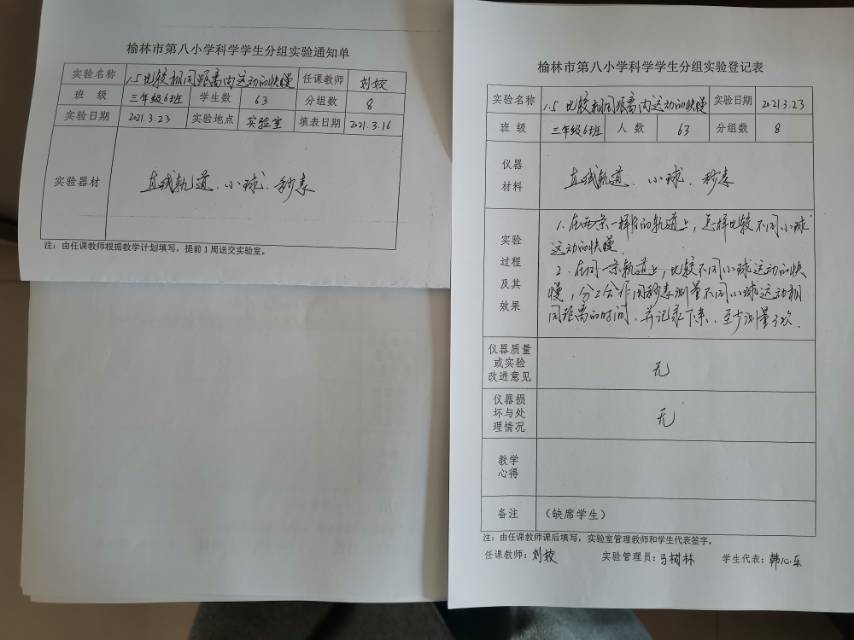 榆林市第八小学科学学生分组实验通知单
实验名称 1.5 比较相同距离内运动的快慢 任课教师 刘姣
班 级 三年级6班 学生数 63 分组数 8
实验日期 2021.3.23 实验地点 实验室 填表日期 2021.3.16
实验器材 直线轨道、小球、秒表
注：由任课教师根据教学计划填写，提前1周送交实验室。
榆林市第八小学科学学生分组实验登记表
实验名称 1.5 比较相同距离内运动的快慢 实验日期 2021.3.23
班 级 三年级6班 人 数 63 分组数 8
仪器
材料
直线轨道、小球、秒表
实验
过程
及其
效果
1.在两条一样的轨道上，怎样比较不同小球
运动的快慢
2.在同一条轨道上，比较不同小球运动的快
慢，分工合作用秒表测量不同小球运动相
同距离的时间，并记录下来，至少测量3次.
仪器质量
或实验
改进意见
无
仪器损
坏与处
理情况
无
教学
心得
备注 （缺席学生）
注：由任课教师课后填写，实验室管理教师和学生代表签字。
任课教师：刘姣 实验管理员：马树林 学生代表：韩心乐